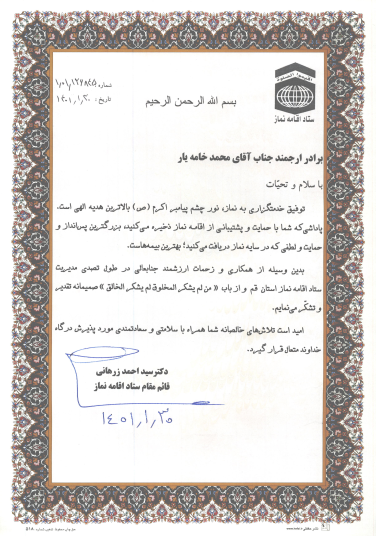 اقیموا الصلوة
ستاد اقامه نماز
شماره
تاریخ ۱۴۰۱٫۱٫۳۰
بسم الله الرحمن الرحیم
برادر ارجمند جناب آقای محمد خامه یار
با سلام و تحیّات
توفیق خدمتگزاری به نماز، نور چشم پیامبر اکرم (ص) بالاترین هدیه الهی است.
پاداشی‌که شما با حمایت و پشتیبانی از اقامه نماز ذخیره می‌کنید، بزرگترین پس‌انداز و
حمایت و لطفی که در سایه نماز دریافت می‌کنید؛ بهترین بیمه‌هاست.
بدین وسیله از همکاری و زحمات ارزشمند جنابعالی در طول تصدی مدیریت
ستاد اقامه نماز استان قم و از باب « من لم یشکر المخلوق لم یشکر الخالق » صمیمانه تقدیر
و تشکّر می‌نمایم.
امید است تلاش‌های خالصانه شما همراه با سلامتی و سعادتمندی مورد پذیرش درگاه
خداوند متعال قرار گیرد.
دکتر سید احمد زرهانی
قائم مقام ستاد اقامه نماز
۱۴۰۱٫۱٫۳۰